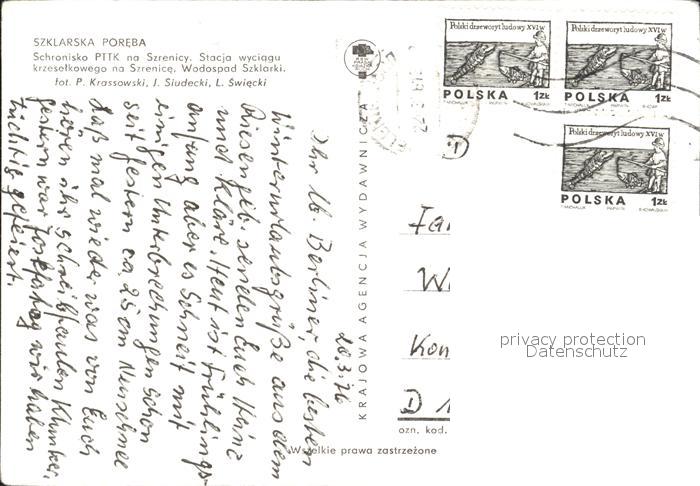 SZKLARSKA PORĘBA
Schronisko PTTK na Szrenicy. Stacja wyciągu
krzesełkowego na Szrenicę. Wodospad Szklarki.
fot. P. Krassowski, J. Siudecki, L. Święcki
KRAJOWA AGENCJA WYDAWNICZA
Polski drzeworyt ludowy XVI w
POLSKA 1 ZŁ
Polski drzeworyt ludowy XVI w
POLSKA 1 ZŁ
Polski drzeworyt ludowy XVI w
POLSKA 1 ZŁ
20.3.76
Ihr lb. Berliner, die besten
Winterurlaubsgrüße aus dem
Riesengeb. senden Euch Heinz
und Kläre. Heut ist Frühlings-
anfang aber es schneit mit
einigen Unterbrechungen schon
seit gestern ca 25 cm Neuschnee
Laß mal wieder was von Euch
hören ihr schreibfaulen Klunker,
gestern war Josephstag wir haben
tüchtig gefeiert.
Fa
W
Kon
D 1
ozn. kod.
Wszelkie prawa zastrzeżone
privacy protection
Datenschutz